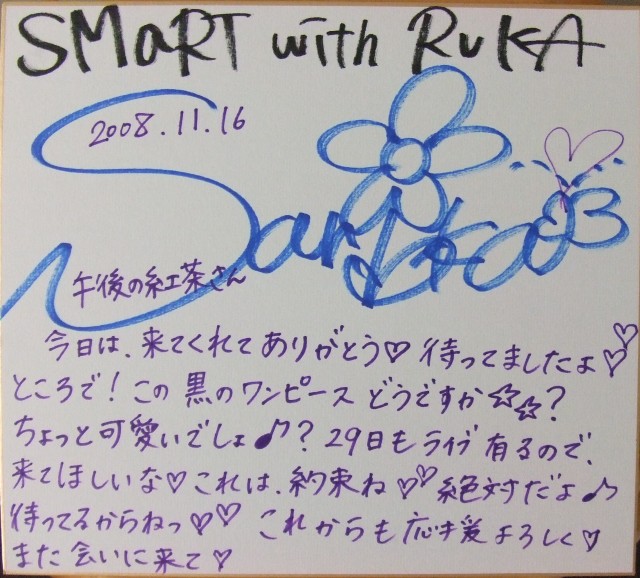 SMaRT with RuKA
2008.11.16
午後の紅茶さん
今日は、来てくれてありがとう♡ 待ってましたよ♡♡
ところで！この黒のワンピースどうですか☆☆？
ちょっと可愛いでしょ♪？29日もライブ有るので、
来てほしいな♡これは、約束ね♡♡絶対だよ♪
待ってるからねっ♡♡ これからも応援よろしく♡
また会いに来て♡